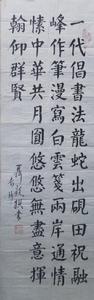 一代倡書法龍蛇出硯田祝融
峰作筆漫寫白雲箋兩岸通情
愫中華共月圓悠悠無盡意揮
翰仰群賢